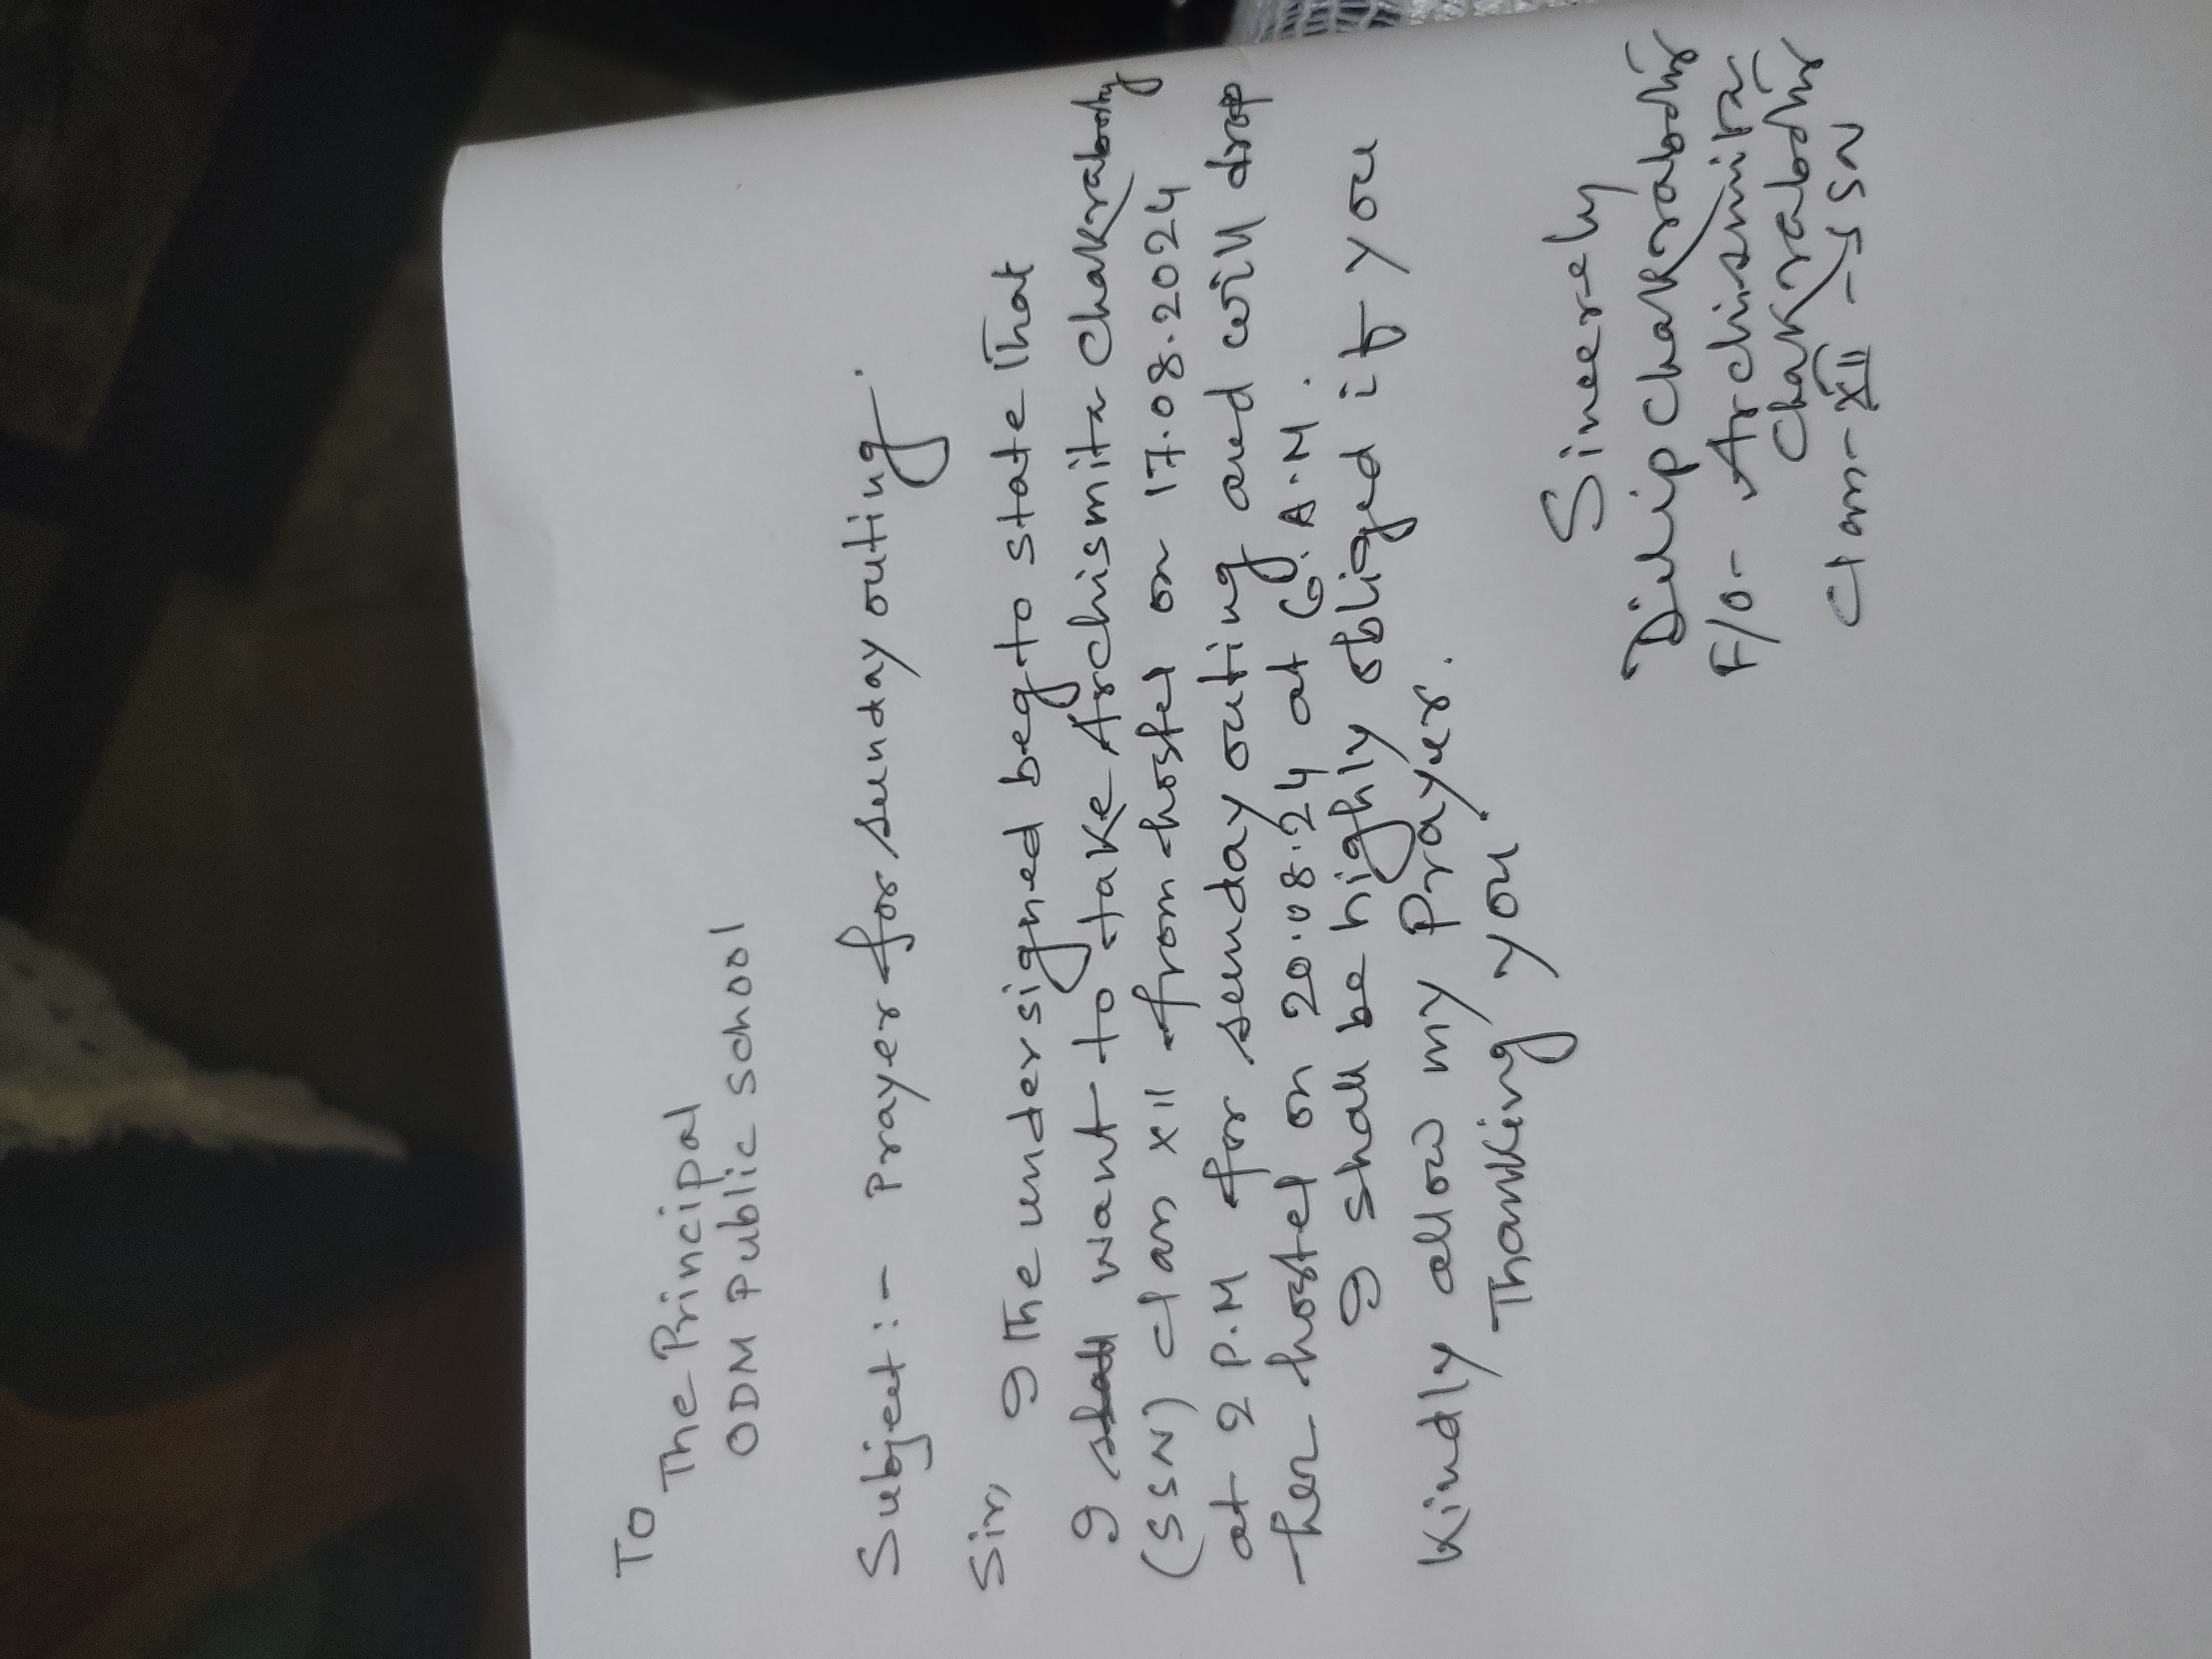 To
The Principal
ODM Public School
Subject:- Prayer for sunday outing.
Sir,
I The undersigned beg to state That
I want to take Archismita Chakraborty
(SSN) class XII from hostel on 17.08.2024
at 2 P.M for sunday outing and will drop
her hostel on 20.08.24 at 6 A.M.
I shall be highly obliged if you
Kindly allow my Prayer.
Thanking you
Sincerely
Dilip Chakraborty
F/o- Archismita
Chakraborty
Class-XII - SSN